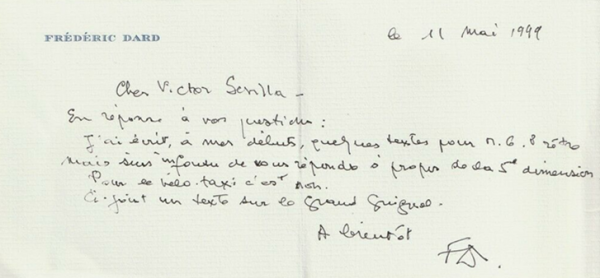 FRÉDÉRIC DARD
le 11 Mai 1999
Cher Victor Sevilla -
En réponse à vos questions :
J'ai écrit, à mes débuts, quelques textes pour M. G.
mais suis infoutu de vous répondre à propos de la 5e dimension
Pour le vélo-taxi c'est non.
Ci-joint un texte sur le Grand Guignol.
A bientôt
FD.